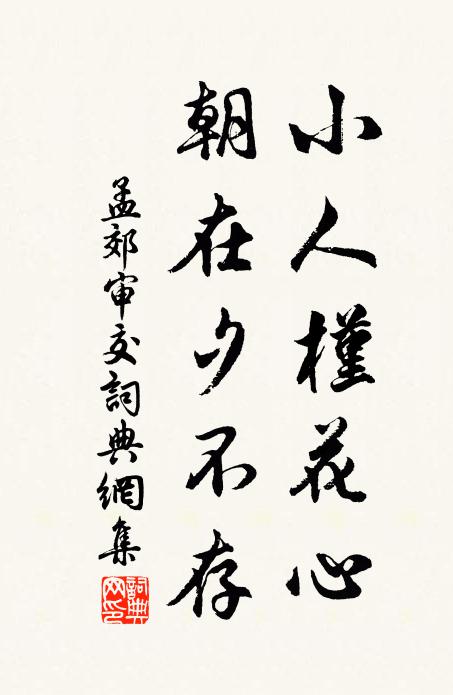 小人槿花心
朝在夕不存
孟郊审交詞典網集
詞典
网印